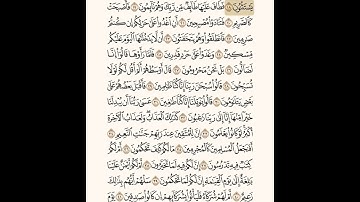 يَسْتَثْنُونَ ١٨ فَطَافَ عَلَيْهَا طَآئِفٌ مِّن رَّبِّكَ وَهُمْ نَآئِمُونَ ١٩ فَأَصْبَحَتْ
كَٱلصَّرِيمِ ٢٠ فَتَنَادَوْا۟ مُصْبِحِينَ ٢١ أَنِ ٱغْدُوا۟ عَلَىٰ حَرْثِكُمْ إِن كُنتُمْ
صَٰرِمِينَ ٢٢ فَٱنطَلَقُوا۟ وَهُمْ يَتَخَٰفَتُونَ ٢٣ أَن لَّا يَدْخُلَنَّهَا ٱلْيَوْمَ عَلَيْكُم
مِّسْكِينٌ ٢٤ وَغَدَوْا۟ عَلَىٰ حَرْدٍ قَٰدِرِينَ ٢٥ فَلَمَّا رَأَوْهَا قَالُوٓا۟ إِنَّا
لَضَآلُّونَ ٢٦ بَلْ نَحْنُ مَحْرُومُونَ ٢٧ قَالَ أَوْسَطُهُمْ أَلَمْ أَقُل لَّكُمْ لَوْلَا
تُسَبِّحُونَ ٢٨ قَالُوا۟ سُبْحَٰنَ رَبِّنَآ إِنَّا كُنَّا ظَٰلِمِينَ ٢٩ فَأَقْبَلَ بَعْضُهُمْ عَلَىٰ
بَعْضٍ يَتَلَٰوَمُونَ ٣٠ قَالُوا۟ يَٰوَيْلَنَآ إِنَّا كُنَّا طَٰغِينَ ٣١ عَسَىٰ رَبُّنَآ أَن يُبْدِلَنَا
خَيْرًا مِّنْهَآ إِنَّآ إِلَىٰ رَبِّنَا رَٰغِبُونَ ٣٢ كَذَٰلِكَ ٱلْعَذَابُ وَلَعَذَابُ ٱلْءَاخِرَةِ
أَكْبَرُ لَوْ كَانُوا۟ يَعْلَمُونَ ٣٣ إِنَّ لِلْمُتَّقِينَ عِندَ رَبِّهِمْ جَنَّٰتِ ٱلنَّعِيمِ ٣٤
أَفَنَجْعَلُ ٱلْمُسْلِمِينَ كَٱلْمُجْرِمِينَ ٣٥ مَا لَكُمْ كَيْفَ تَحْكُمُونَ ٣٦ أَمْ لَكُمْ
كِتَٰبٌ فِيهِ تَدْرُسُونَ ٣٧ إِنَّ لَكُمْ فِيهِ لَمَا تَخَيَّرُونَ ٣٨ أَمْ لَكُمْ أَيْمَٰنٌ عَلَيْنَا
بَٰلِغَةٌ إِلَىٰ يَوْمِ ٱلْقِيَٰمَةِ إِنَّ لَكُمْ لَمَا تَحْكُمُونَ ٣٩ سَلْهُمْ أَيُّهُم بِذَٰلِكَ
زَعِيمٌ ٤٠ أَمْ لَهُمْ شُرَكَآءُ فَلْيَأْتُوا۟ بِشُرَكَآئِهِمْ إِن كَانُوا۟ صَٰدِقِينَ ٤١ يَوْمَ